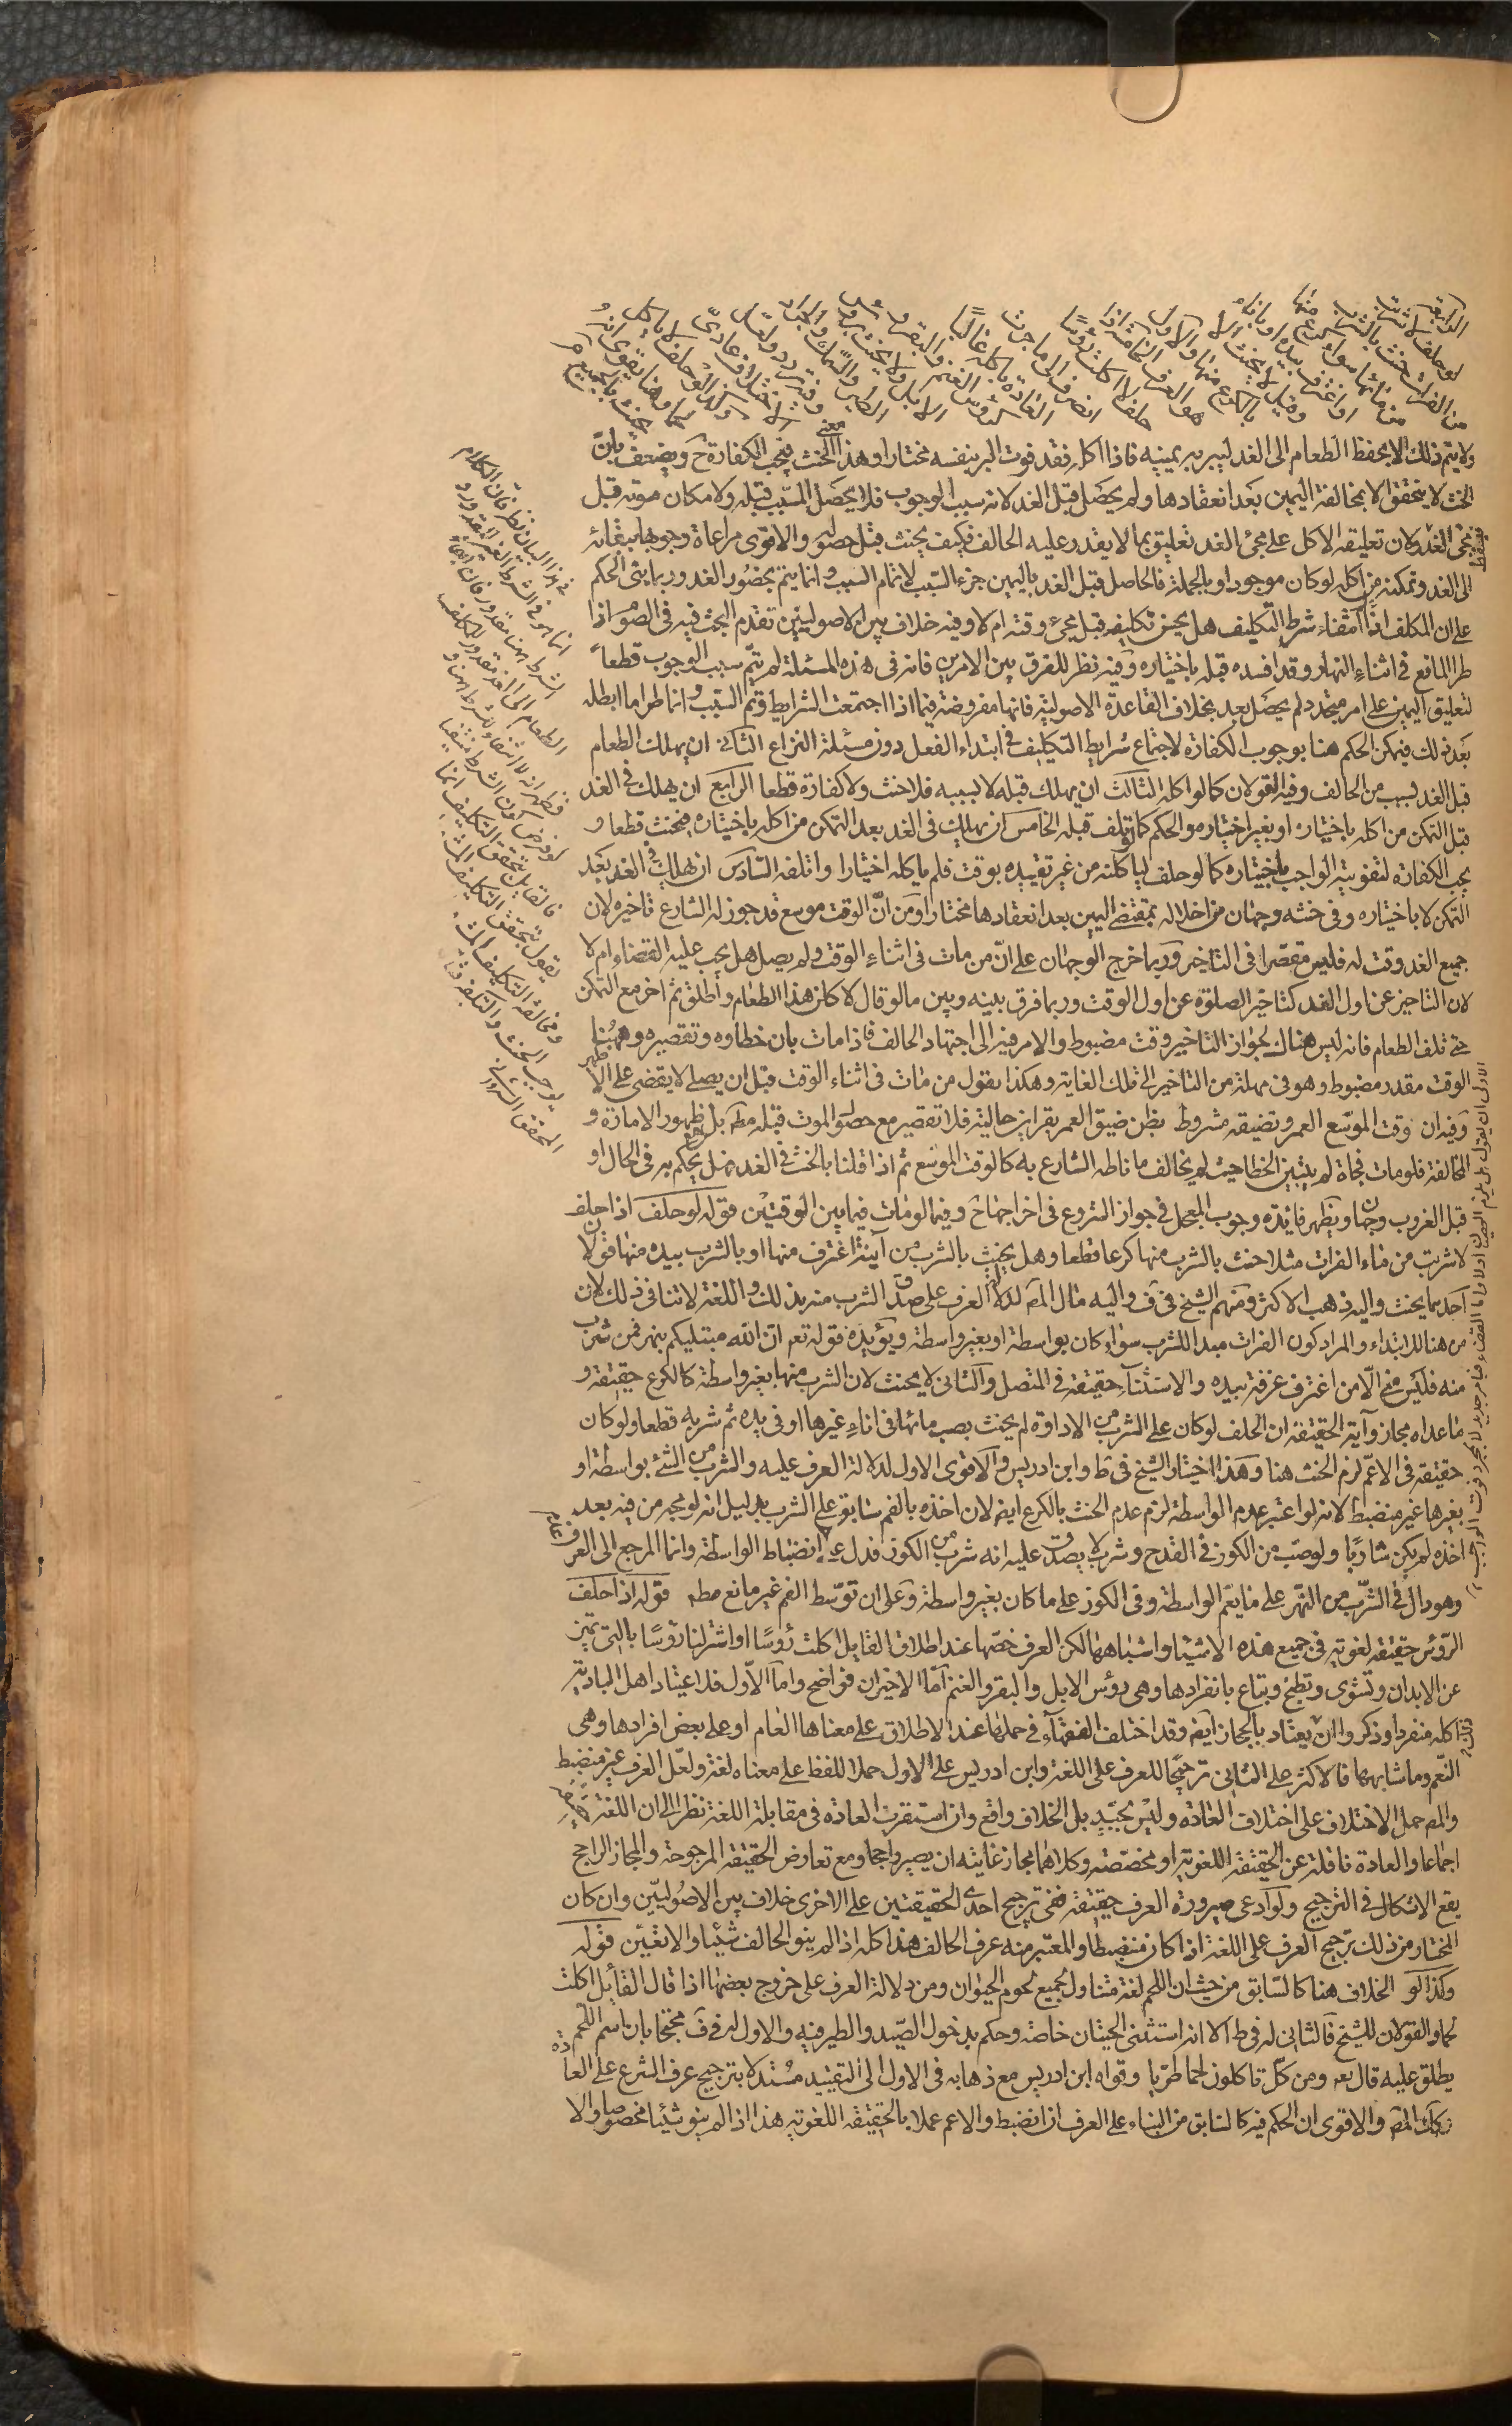 الرابعة
لو حلف لا شربت
من الفرات حنث بالشرب
من مائها سواء كرع منها
او اغترف بيده او باناء
وقيل لا يحنث الا
بالكرع منها والاول
هو العرف الخامسة اذا
حلف لا اكلت رؤسا
انصرف الى ما جرت
العادة باكله غالبا
كرؤس الغنم والبقر و
الابل ولا يحنث برؤس
الطير والسمك والجراد
وفيه تردد ولعل
الاختلاف عادى
وكذا لو حلف لا ياكل
لحما وهنا يقوى انه
يحنث بالجميع
ولا يتم ذلك الا بحفظ الطعام الى الغد ليبر به يمينه فاذا اكله فقد فوت البر بنفسه مختارا وهذا معنى الحنث فيجب الكفارة ح ويضعف بان
الحنث لا يتحقق الا بمخالفة اليمين بعد انعقادها ولم يحصل قبل الغد لانه سبب الوجوب فلا يحصل المسبب قبله ولامكان موته قبل
مجئ الغد فيسقط ولان تعليقه الاكل على مجئ الغد تعليق بما لا يقدر عليه الحالف فكيف يحنث قبل حصوله والاقوى مراعاة وجوبها ببقائه
الى الغد وتمكنه من اكله لو كان موجودا وبالجملة فالحاصل قبل الغد باليمين جزء السبب لا تمام السبب وانما يتم بحضور الغد وربما بنى الحكم
على ان المكلف اذا علم انتفاء شرط التكليف هل يحسن تكليفه قبل مجئ وقته ام لا وفيه خلاف بين الاصوليين تقدم البحث فيه فى الصوم اذا
طرا المانع فى اثناء النهار وقد افسده قبله باختياره وفيه نظر للفرق بين الامرين فانه فى هذه المسئلة لم يتم سبب الوجوب قطعا
لتعليق اليمين على امر متجدد لم يحصل بعد بخلاف القاعدة الاصولية فانها مفروضة فيما اذا اجتمعت الشرايط وتم السبب وانما طرا ما ابطله
بعد ذلك فيمكن الحكم هنا بوجوب الكفارة لاجتماع شرايط التكليف فى ابتداء الفعل دون مسئلة النزاع الثانى ان يهلك الطعام
قبل الغد بسبب من الحالف وفيه القولان كما لو اكله الثالث ان يهلك قبله لا بسببه فلا حنث ولا كفارة قطعا الرابع ان يهلك فى الغد
قبل التمكن من اكله باختياره او بغير اختياره والحكم كما لو تلف قبله الخامس ان يهلك فى الغد بعد التمكن من اكله باختياره فيحنث قطعا و
يجب الكفارة لتفويته الواجب باختياره كما لو حلف لياكلنه من غير تقييده بوقت فلم ياكله اختيارا واتلفه السادس ان يهلك فى الغد بعد
التمكن لا باختياره وفى حنثه وجهان من اخلاله بمقتضى اليمين بعد انعقادها مختارا ومن ان الوقت موسع قد جوز له الشارع تاخيره لان
جميع الغد وقت له فليس مقصرا فى التاخير وربما خرج الوجهان على ان من مات فى اثناء الوقت ولم يصل هل يجب عليه القضاء ام لا
لان التاخير عن اول الغد كتاخير الصلوة عن اول الوقت وربما فرق بينه وبين ما لو قال لا كلن هذا الطعام واطلق ثم اخر مع التمكن
حتى تلف الطعام فانه ليس هناك لجواز التاخير وقت مضبوط والامر فيه الى اجتهاد الحالف فاذا مات بان خطاوه وتقصيره وههنا
الوقت مقدر مضبوط وهو فى مهلة من التاخير الى تلك الغاية وهكذا يقول من مات فى اثناء الوقت قبل ان يصلى لا يقضى على الاظهر
وفيه ان وقت الموسع العمر وتضيقه مشروط بظن ضيق العمر بقراين حالية فلا تقصير مع حصول الموت قبله مطه بل ظهور الامارة و
المخالفة فلو مات فجاة لم يتبين الخطا حيث لم يخالف ما ناطه الشارع به كالوقت الموسع ثم اذا قلنا بالحنث فى الغد فهل يحكم به فى الحال او
قبل الغروب وجهان ويظهر فائدته وجوب المعجل فى جواز الشروع فى اخراجها ح وفيما لو مات فيما بين الوقتين قوله لو حلف اذا حلف
لا شربت من ماء الفرات مثلا حنث بالشرب منها كرعا قطعا وهل يحنث بالشرب من آنية اغترف منها او بالشرب بيده منها قولان
احدهما يحنث واليه ذهب الاكثر ومنهم الشيخ فى ف واليه مال المص لدلالة العرف على صدق الشرب منه بذلك واللغة لا تنافى ذلك لان
من هنا للابتداء والمراد كون الفرات مبدا للشرب سواء كان بواسطة او بغير واسطة ويؤيده قوله تعه ان الله مبتليكم بنهر فمن شرب
منه فليس منى الا من اغترف غرفة بيده والاستثناء حقيقة فى المتصل والثانى لا يحنث لان الشرب منها بغير واسطة كالكرع حقيقة و
ما عداه مجاز وآية الحقيقة ان الحلف لو كان على الشرب من الاداوة لم يحنث بصب مائها فى اناء غيرها او فى يده ثم شربه قطعا ولو كان
حقيقة فى الاعم لزم الحنث هنا وهذا اختيار الشيخ فى ط وابن ادريس والاقوى الاول لدلالة العرف عليه والشرب من الشئ بواسطة او
بغيرها غير منضبط لانه لو اعتبر عدم الواسطة لزم عدم الحنث بالكرع ايضا لان اخذه بالفم سابق على الشرب بدليل انه لو مجه من فيه بعد
اخذه لم يكن شاربا ولو صب من الكوز فى القدح وشربه لا يصدق عليه انه شرب من الكوز فدل على عدم انضباط الواسطة وانما المرجع الى العرف
وهو دال فى الشرب من النهر على ما يعم الواسطة وفى الكوز على ما كان بغير واسطة وعلى ان توسط الفم غير مانع مطه قوله اذا حلف
الرؤس حقيقة لغوية فى جميع هذه الاشياء واشباهها لكن العرف خصها عند اطلاق القايل اكلت رؤسا او اشتر لنا رؤسا بالتى تميز
عن الابدان وتشوى وتطبخ وتباع بانفرادها وهى رؤس الابل والبقر والغنم اما الاخيران فواضح واما الاول فلاعتياد اهل البادية
اكله منفردا وذكروا انه يعتاد بالحجاز ايضا وقد اختلف الفقهاء فى حملها عند الاطلاق على معناها العام او على بعض افرادها وهى
النعم وما شابهها فالاكثر على الثانى ترجيحا للعرف على اللغة وابن ادريس على الاول حملا للفظ على معناه لغة ولعل العرف غير منضبط
والمص حمل الاختلاف على اختلاف العادة وليس بجيد بل الخلاف واقع وان استقرت العادة فى مقابلة اللغة نظرا الى ان اللغة
اجماعا والعادة ناقلة عن الحقيقة اللغوية او مخصصة وكلاهما مجاز غايته ان يصير راجحا ومع تعارض الحقيقة المرجوحة والمجاز الراجح
يقع الاشكال فى الترجيح ولو ادعى صيرورة العرف حقيقة ففى ترجيح احدى الحقيقتين على الاخرى خلاف بين الاصوليين وان كان
المختار من ذلك ترجيح العرف على اللغة اذا كان منضبطا والمعتبر منه عرف الحالف هذا كله اذا لم ينو الحالف شيئا والا تعين قوله
وكذا لو الخلاف هنا كالسابق من حيث ان اللحم لغة متناول لجميع لحوم الحيوان ومن دلالة العرف على خروج بعضها اذا قال القائل اكلت
لحما والقولان للشيخ فالثانى له فى ط الا انه استثنى الحيتان خاصة وحكم بدخول الصيد والطير فيه والاول له فى ف محتجا بان اسم اللحم
يطلق عليه قال تعه ومن كل تاكلون لحما طريا وقواه ابن ادريس مع ذهابه فى الاول الى التقييد مستدلا بترجيح عرف الشرع على العادة
المص والاقوى ان الحكم فيه كالسابق من البناء على العرف ان انضبط والاعم عملا بالحقيقة اللغوية هذا اذا لم ينو شيئا مخصوصا والا
فى هذا البيان نظر فان الكلام
انما هو فى الشرط الغير المقدور و
الشرط ههنا مقدور فان ابقاء
الطعام الى الغد مقدور للمكلف